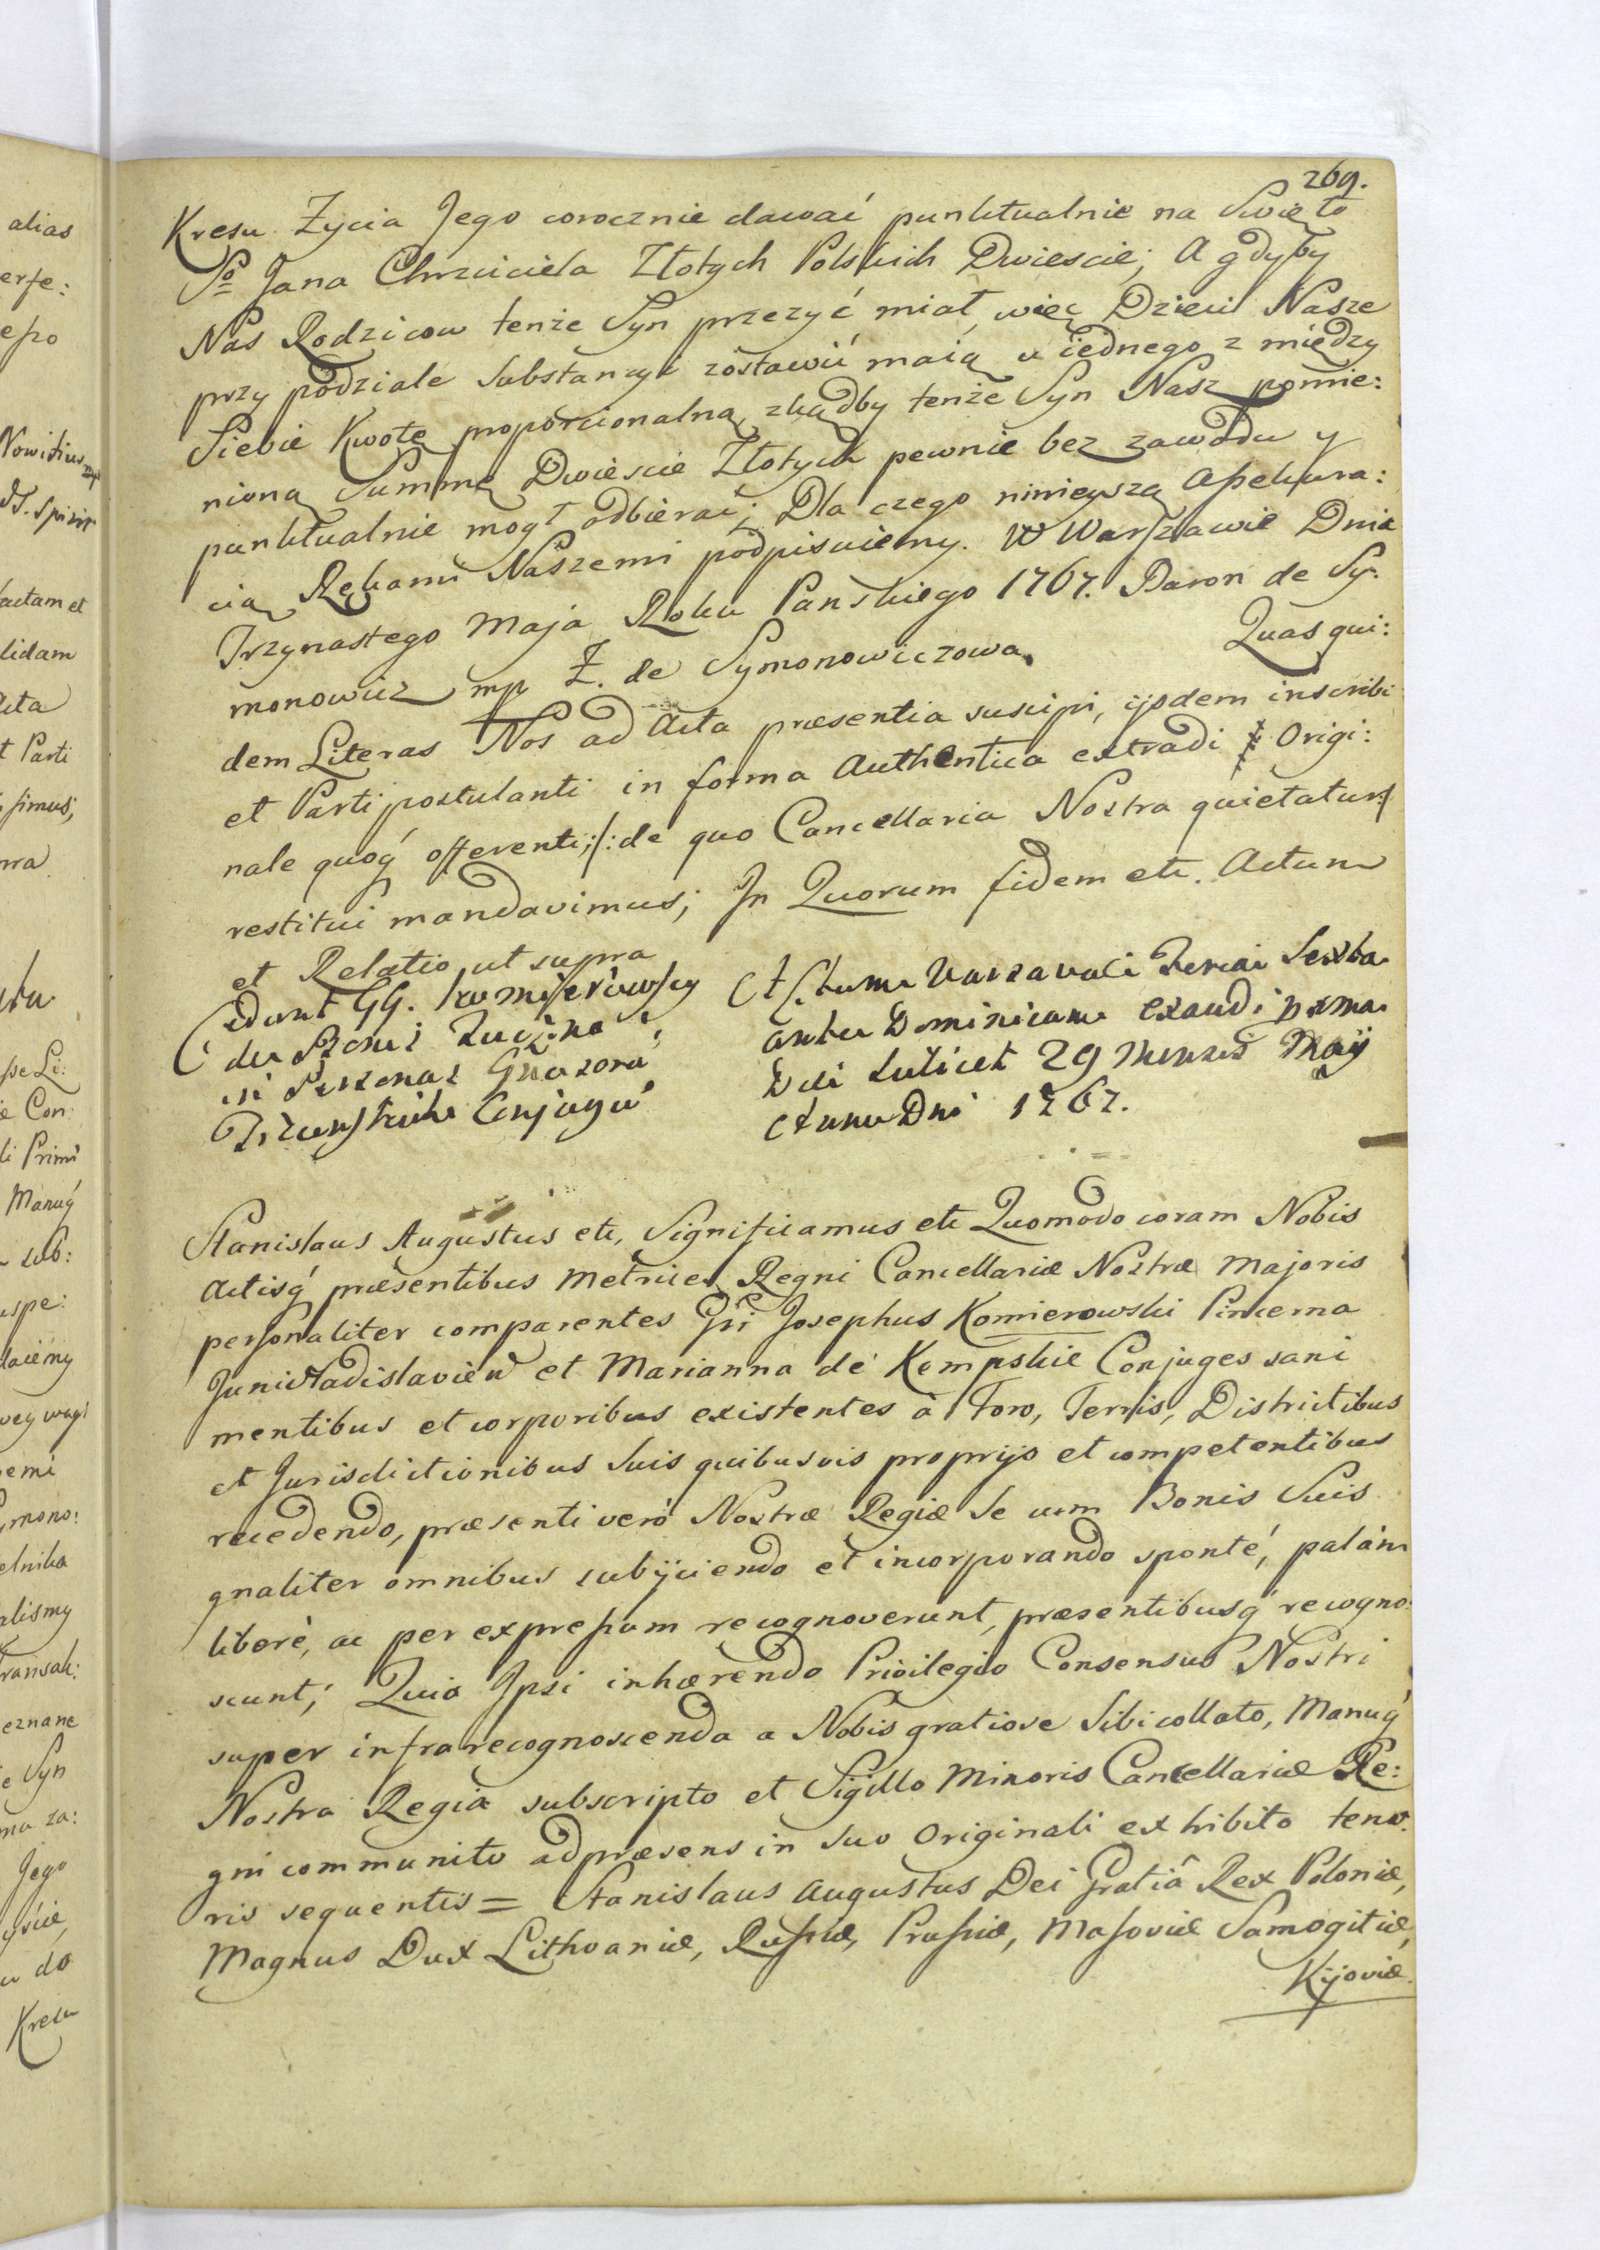 269.
Kresu Zycia Jego corocznie dawać punktualnie na Swięto
Sgo Jana Chrzciciela Złotych Polskich Dwiescie; A gdyby
Nas Rodzicow tenże Syn przezyć miał, więc Dzieci Nasze
przy podziale Substancyi zostawić maią u iednego z między
Siebie Kwotę proporcionalną, zkądby tenże Syn Nasz pomie:
nioną Summę Dwiescie Złotych pewnie bez zawodu y
punktualnie mogł odbierać; Dla czego ninieyszą Assekura:
cią Rękami Naszemi podpisuiemy. W Warszawie Dnia
Trzynastego Maja Roku Panskiego 1767. Baron de Sy:
monowicz mp Z. de Symonowiczowa. Quas qui:
dem Literas Nos ad Acta præsentia suscipi, ijsdem inscribi
et Parti postulanti in forma Authentica extradi Origi:
nale quoq́ offerenti;/:de quo Cancellaria Nostra quietatur:/
restitui mandavimus; In Quorum fidem etc. Actum
et Relatio ut supra
Cedunt GG. Komierowscy
de Bonis
in Personas Gnosoru
Conjugu
Actum Varsaviæ Feria Sexta
ante Dominicam Exaudi proxima
Die Scilicet 29 Mensis Maij
Anno Dni 1767.
Stanislaus Augustus etc, Significamus etc Quomodo coram Nobis
Actisq́ præsentibus Metrices Regni Cancellariæ Nostræ Majoris
personaliter comparentes Gsi Josephus Komierowski Pincerna
Junivladislavien et Marianna de Kempskie Conjuges sani
mentibus et corporibus existentes à Foro, Terris, Districtibus
et Jurisdictionibus Suis quibusvis proprijs et competentibus
recedendo, præsenti verò Nostræ Regiæ Se cum Bonis Suis
gnaliter omnibus subijciendo et incorporando sponté, palám
liberè, ac per expressum recognoverunt, præsentibusq́ recogno:
scunt; Quia Ipsi inhærendo Privilegio Consensus Nostri
super infrarecognoscenda a Nobis gratiose Sibi collato, Manuq́
Nostra Regia subscripto et Sigillo Minoris Cancellariæ Re:
gni communito ad præsens in Suo Originali exhibito teno:
ris sequentis = Stanislaus Augustus Dei Gratiâ Rex Poloniæ,
Magnus Dux Lithvaniæ, Russiæ, Prussiæ, Masoviæ Samogitiæ,
Kijoviæ